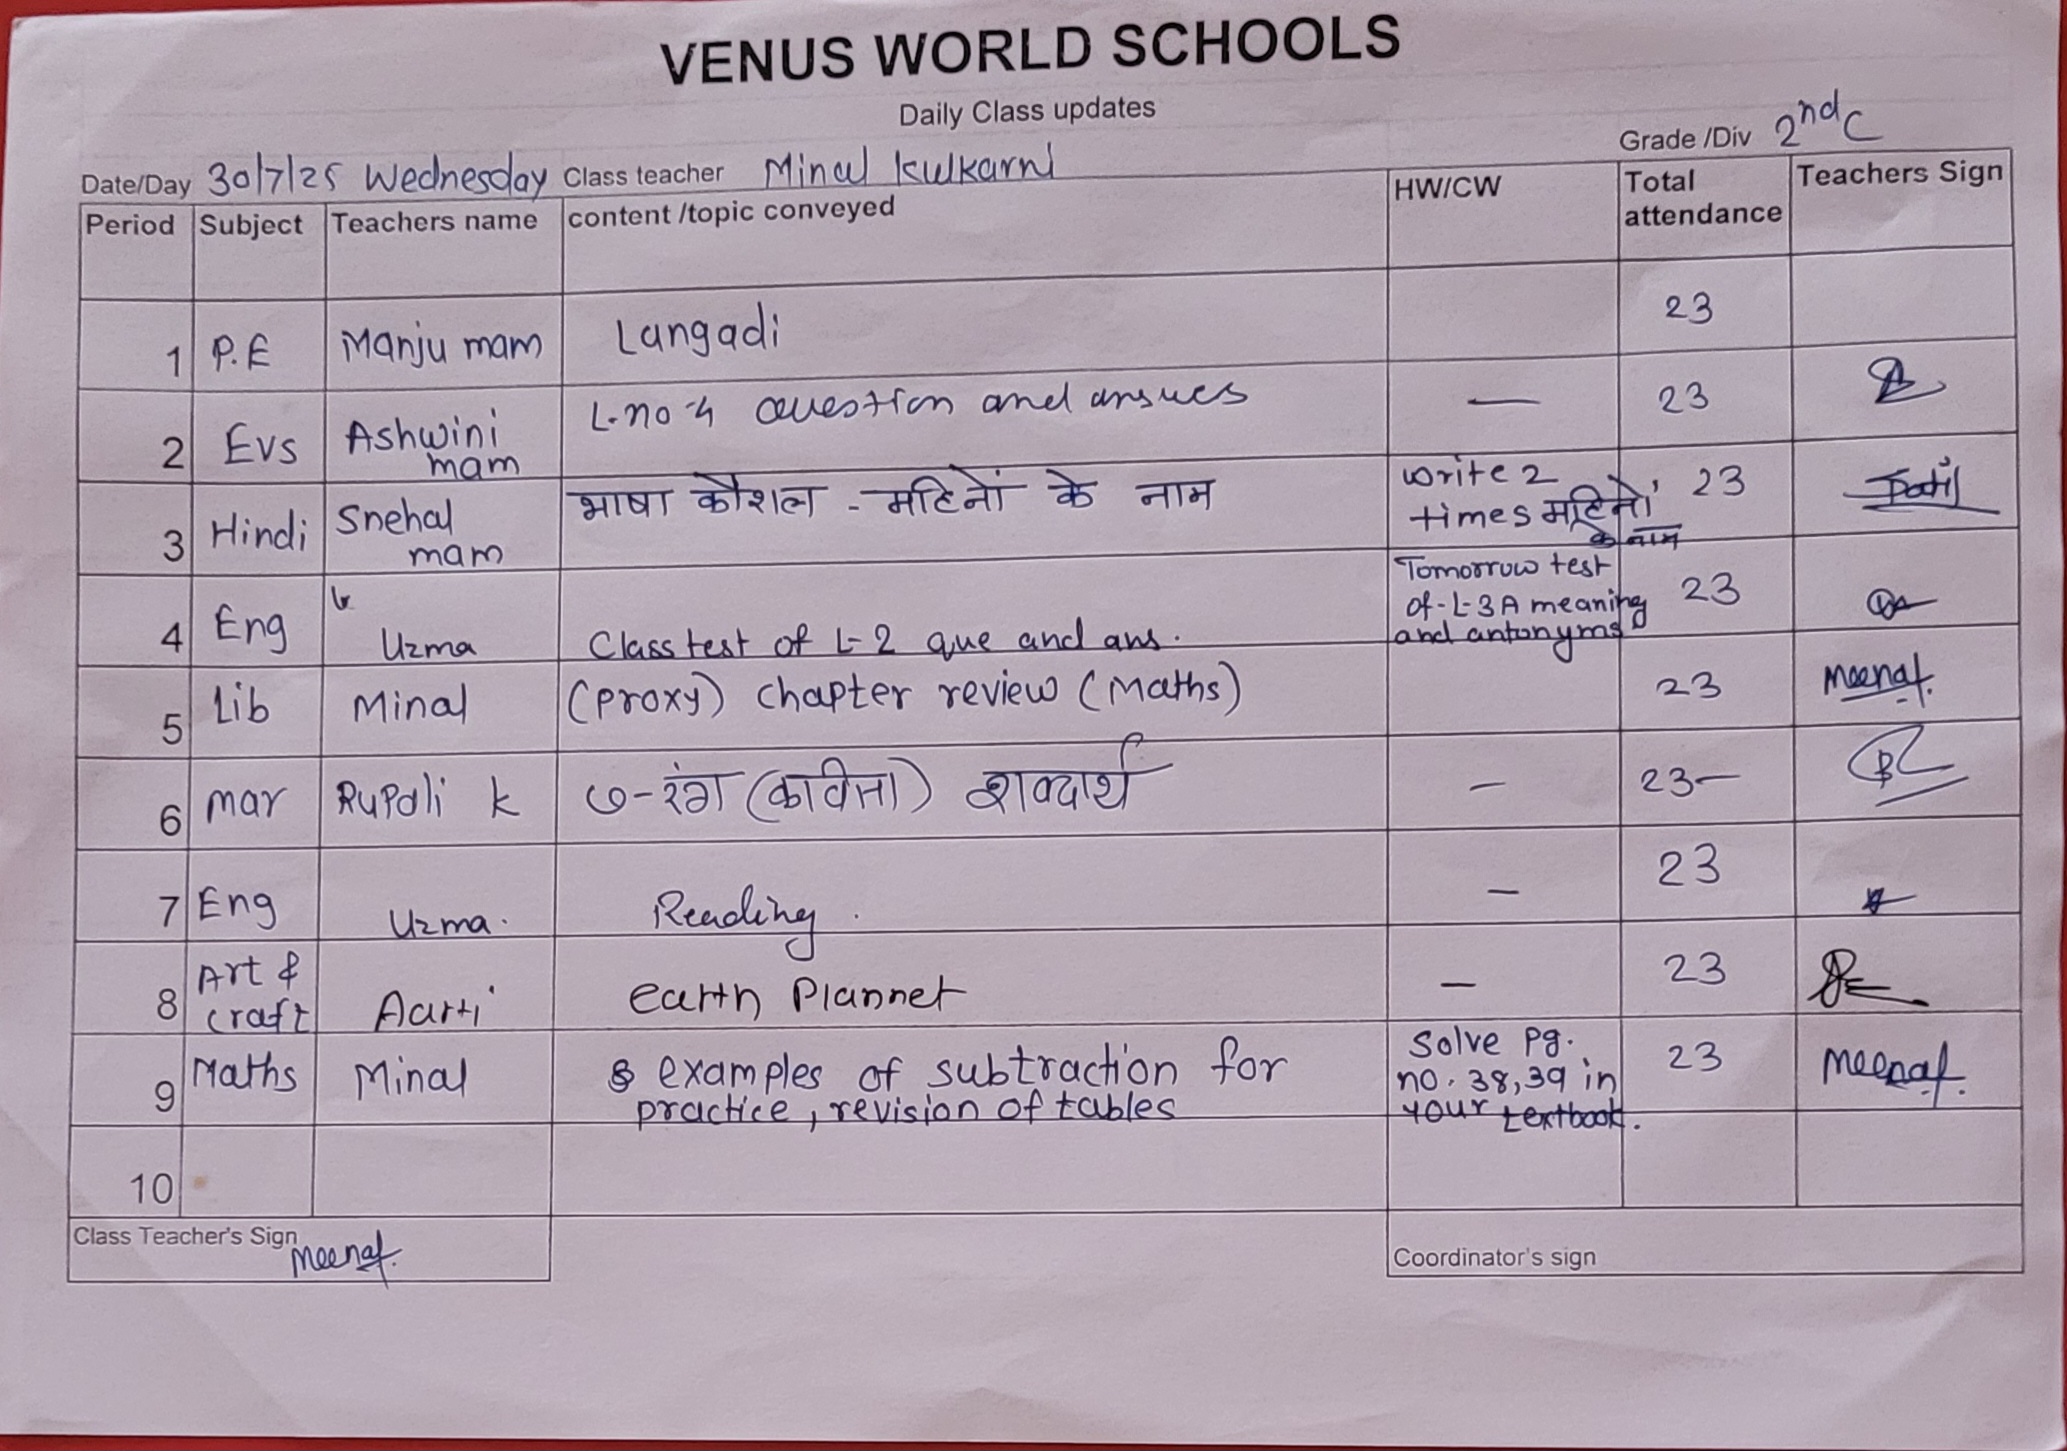 VENUS WORLD SCHOOLS
Daily Class updates
Grade /Div 2nd C
Date/Day 30/7/25 Wednesday Class teacher Minal Kulkarni
Period Subject Teachers name content /topic conveyed HW/CW Total attendance Teachers Sign
1 P.E Manju mam Langadi 23
2 Evs Ashwini mam L-no-4 question and answes — 23
3 Hindi Snehal mam भाषा कौशल - महिनों के नाम write 2 times महिनों के नाम 23 Patil
4 Eng Uzma Class test of L-2 que and ans. Tomorrow test of - L-3A meaning and antonyms 23
5 Lib Minal (proxy) chapter review (Maths) 23 Meenal.
6 mar Rupali k ७-रंग (कविता) शब्दार्थ — 23—
7 Eng Uzma. Reading. — 23
8 Art & craft Aarti earth Plannet — 23
9 Maths Minal examples of subtraction for practice, revision of tables Solve pg. no. 38,39 in your textbook. 23 Meenal.
10
Class Teacher's Sign Meenal.
Coordinator's sign